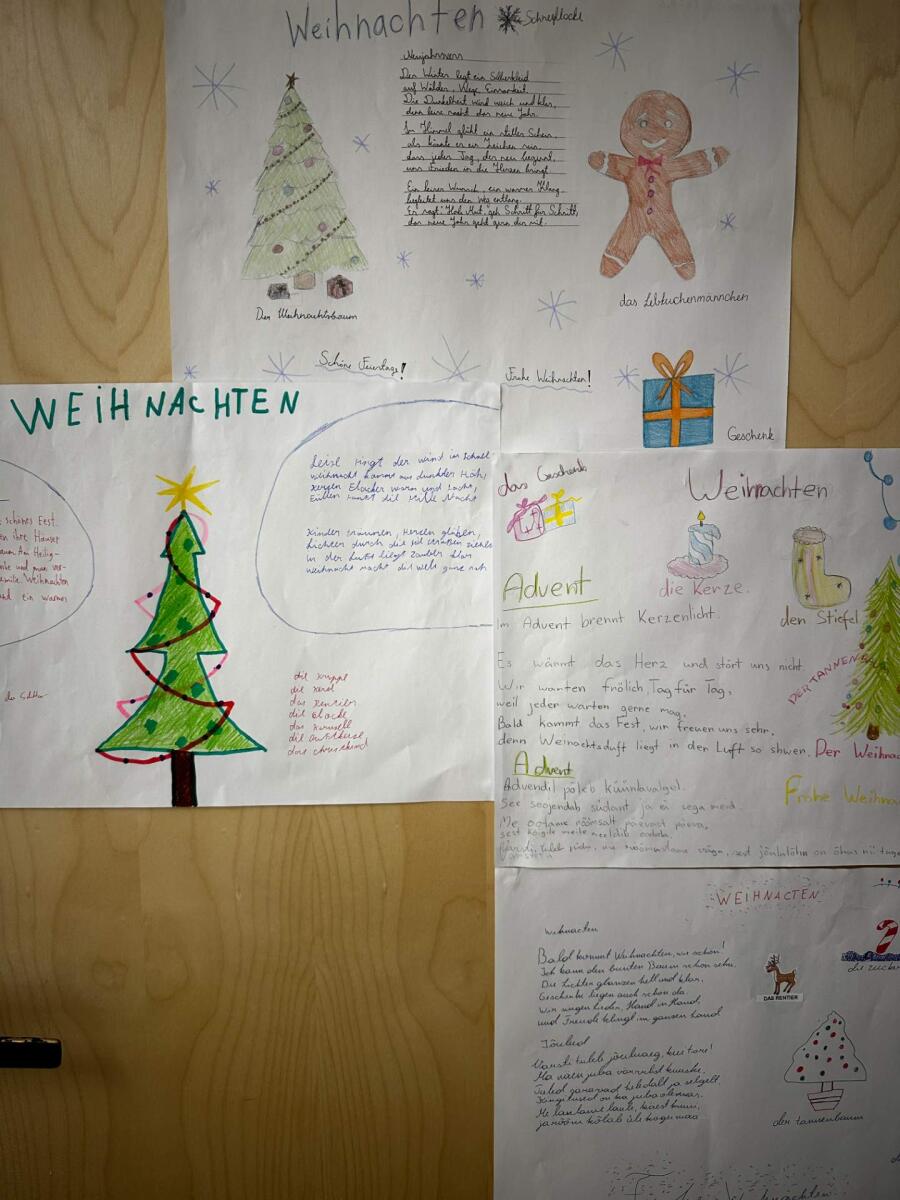 Weihnachten
Schneeflocke
Neujahrsvers
Der Winter legt ein Silberkleid
auf Wälder, Wege, Einsamkeit.
Die Dunkelheit wird weich und klar,
denn leise naht das neue Jahr.
Im Himmel glüht ein stilles Schein,
als könnte er ein Zeichen sein,
dass jeder Tag, der neu beginnt,
uns Frieden in die Herzen bringt.
Ein leiser Wunsch, ein warmer Klang
begleitet uns den Weg entlang.
Er sagt: "Hab Mut, geh Schritt für Schritt,
das neue Jahr geht gern dir mit.
Der Weihnachtsbaum
das Lebkuchenmännchen
Schöne Feiertage!
Frohe Weihnachten!
Geschenk
WEIHNACHTEN
schönes Fest.
en ihre Häuser
aum. Am Heilig-
nke und man ver-
amilie. Weihnachten
nd ein warmes
Leise singt der wind im
weihnacht kommt aus dunkler Höh,
kerzen flacker warm und sacht,
Kinder träumen, Herzen glühen,
Lichter durch die
in der Luft liegt Zauber klar
weihnacht macht die welt ganz nah
der Schlitten
die krippe
die
das rentier
die Glocke
das karusell
die
das christkind
das Geschenk
Weihnachten
die Kerze.
den Stiefel
DER TANNENBAUM
Advent
Im Advent brennt Kerzenlicht.
Es wärmt das Herz und stört uns nicht.
Wir warten frölich, Tag für Tag,
weil jeder warten gerne mag.
Bald kommt das Fest, wir freuen uns sehr,
denn Weinachtsduft liegt in der Luft so shwer.
Der Weihna
Frohe Weihna
Advent
Advendil põleb küünlavalgel.
See soojendab südant ja ei sega meid.
Me ootame rõõmsalt päevast päeva,
sest kõigile meile meeldib oodata.
WEIHNACTEN
Weihnacten
Bald kommt Weihnachten, wie schön!
Ich kann den bunten Baum schon sehn.
Die Lichter glänzen hell und klar,
Geschenke liegen auch schon da.
Wir singen Lieder, Hand in Hand,
und Freude klingt im ganzen Land
DAS RENTIER
die zucker
Jõulud
Varsti tuleb jõuluaeg, kui tore!
Ma näen juba värvilist kuuske.
Tuled säravad heledalt ja selgelt,
Kingitused on ka juba olemas.
Me laulame laule, käest kinni,
ja rõõm kõlab üle kogu maa
der tannenbaum